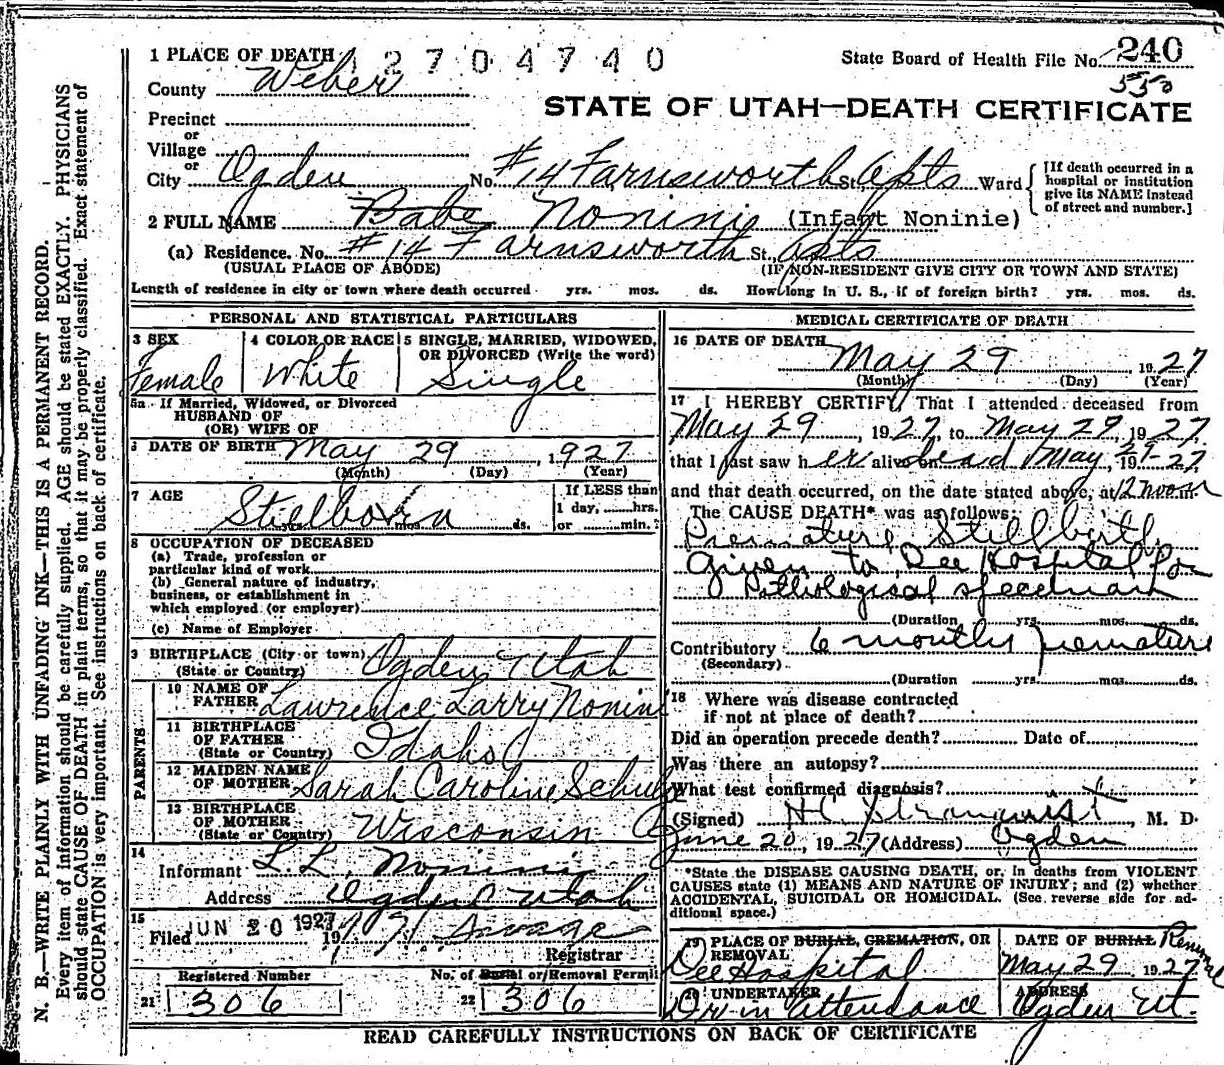 1 PLACE OF DEATH 2704740
State Board of Health File No. 240
County Weber
550
STATE OF UTAH—DEATH CERTIFICATE
Precinct
or
Village
or
City Ogden No. #14 Farnsworth St. Apts Ward
[If death occurred in a
hospital or institution
give its NAME instead
of street and number.]
2 FULL NAME Babe Noninie (Infant Noninie)
(a) Residence. No. #14 Farnsworth St., Apts
(USUAL PLACE OF ABODE) (IF NON-RESIDENT GIVE CITY OR TOWN AND STATE)
Length of residence in city or town where death occurred yrs. mos. ds. How long in U. S., if of foreign birth? yrs. mos. ds.
N. B.—WRITE PLAINLY WITH UNFADING INK—THIS IS A PERMANENT RECORD.
Every item of information should be carefully supplied. AGE should be stated EXACTLY. PHYSICIANS
should state CAUSE OF DEATH in plain terms, so that it may be properly classified. Exact statement of
OCCUPATION is very important. See instructions on back of certificate.
PERSONAL AND STATISTICAL PARTICULARS
3 SEX
Female
4 COLOR OR RACE
White
5 SINGLE, MARRIED, WIDOWED,
OR DIVORCED (Write the word)
Single
5a If Married, Widowed, or Divorced
HUSBAND OF
(OR) WIFE OF
DATE OF BIRTH May 29, 1927
(Month) (Day) (Year)
7 AGE
Stillborn
yrs. mos. ds.
If LESS than
1 day, hrs.
or min.?
8 OCCUPATION OF DECEASED
(a) Trade, profession or
particular kind of work
(b) General nature of industry,
business, or establishment in
which employed (or employer)
(c) Name of Employer
9 BIRTHPLACE (City or town) Ogden Utah
(State or Country)
PARENTS
10 NAME OF
FATHER Lawrence Larry Nonini
11 BIRTHPLACE
OF FATHER
(State or Country) Idaho
12 MAIDEN NAME
OF MOTHER Sarah Caroline
13 BIRTHPLACE
OF MOTHER
(State or Country) Wisconsin
14
Informant L. L. Noninie
Address Ogden Utah
15
Filed JUN 20 1927 19 Savage
Registrar
Registered Number
21 306
No. of Burial or Removal Permit
22 306
MEDICAL CERTIFICATE OF DEATH
16 DATE OF DEATH
May 29, 1927
(Month) (Day) (Year)
17 I HEREBY CERTIFY, That I attended deceased from
May 29, 1927, to May 29, 1927
that I last saw her alive on dead May 29, 1927
and that death occurred, on the date stated above, at 12 noon m.
The CAUSE DEATH* was as follows:
Premature Stillbirth
Given to Dee Hospital for
Pathological
(Duration yrs. mos. ds.
Contributory 6 months premature
(Secondary)
(Duration yrs. mos. ds.
18 Where was disease contracted
if not at place of death?
Did an operation precede death? Date of
Was there an autopsy?
What test confirmed diagnosis?
(Signed) , M. D.
June 20, 1927 (Address) Ogden
*State the DISEASE CAUSING DEATH, or, in deaths from VIOLENT
CAUSES state (1) MEANS AND NATURE OF INJURY; and (2) whether
ACCIDENTAL, SUICIDAL OR HOMICIDAL. (See reverse side for ad-
ditional space.)
19 PLACE OF BURIAL, CREMATION, OR
REMOVAL
Dee Hospital
DATE OF BURIAL Removal
May 29 1927
UNDERTAKER
Dr in Attendance
ADDRESS
Ogden Ut.
READ CAREFULLY INSTRUCTIONS ON BACK OF CERTIFICATE